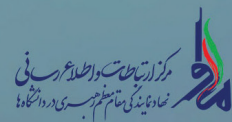 مرکز ارتباطات و اطلاع رسانی
نهاد نمایندگی مقام معظم رهبری در دانشگاه ها